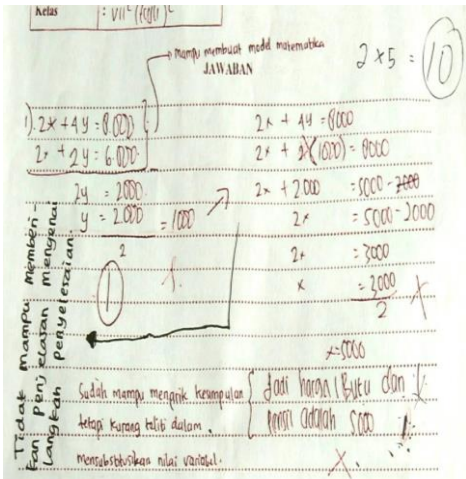 Kelas : VII C
mampu membuat model matematika
JAWABAN
2 x 5 = 10
1). 2x + 4y = 8.000
2x + 2y = 6.000
2y = 2000
y = 2.000 = 1000
2
1
2x + 4y = 8000
2x + (1000) = 8000
2x + 2000 = 5000 - 2000
2x = 5000 - 2000
2x = 3000
x = 3000
2
x = 5000
Tidak mampu memberi-
kan penjelasan mengenai
langkah penyelesaian.
Sudah mampu menarik kesimpulan
tetapi kurang teliti dalam
mensubstitusikan nilai variabel.
Jadi harga 1 Buku dan
pensil adalah 5000